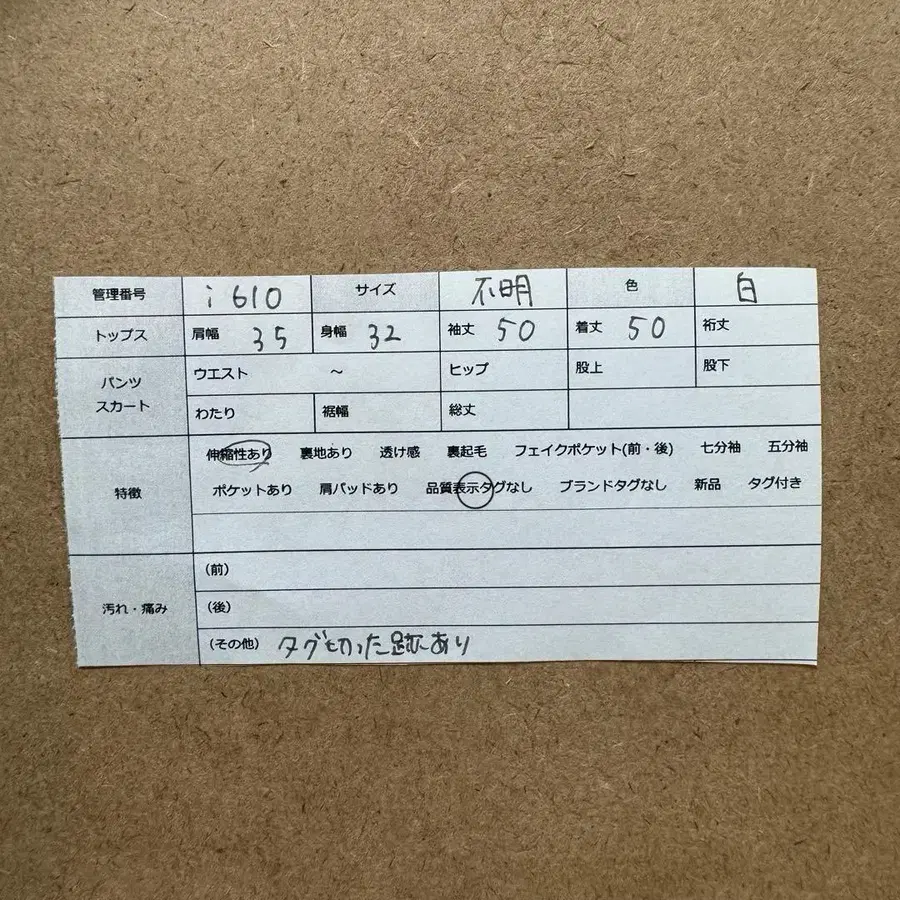 管理番号 i 610 サイズ 不明 色 白
トップス 肩幅 35 身幅 32 袖丈 50 着丈 50 裄丈
パンツ スカート ウエスト ～ ヒップ 股上 股下
わたり 裾幅 総丈
特徴 伸縮性あり 裏地あり 透け感 裏起毛 フェイクポケット(前・後) 七分袖 五分袖
ポケットあり 肩パッドあり 品質表示タグなし ブランドタグなし 新品 タグ付き
汚れ・痛み (前)
(後)
(その他) タグ切った跡あり